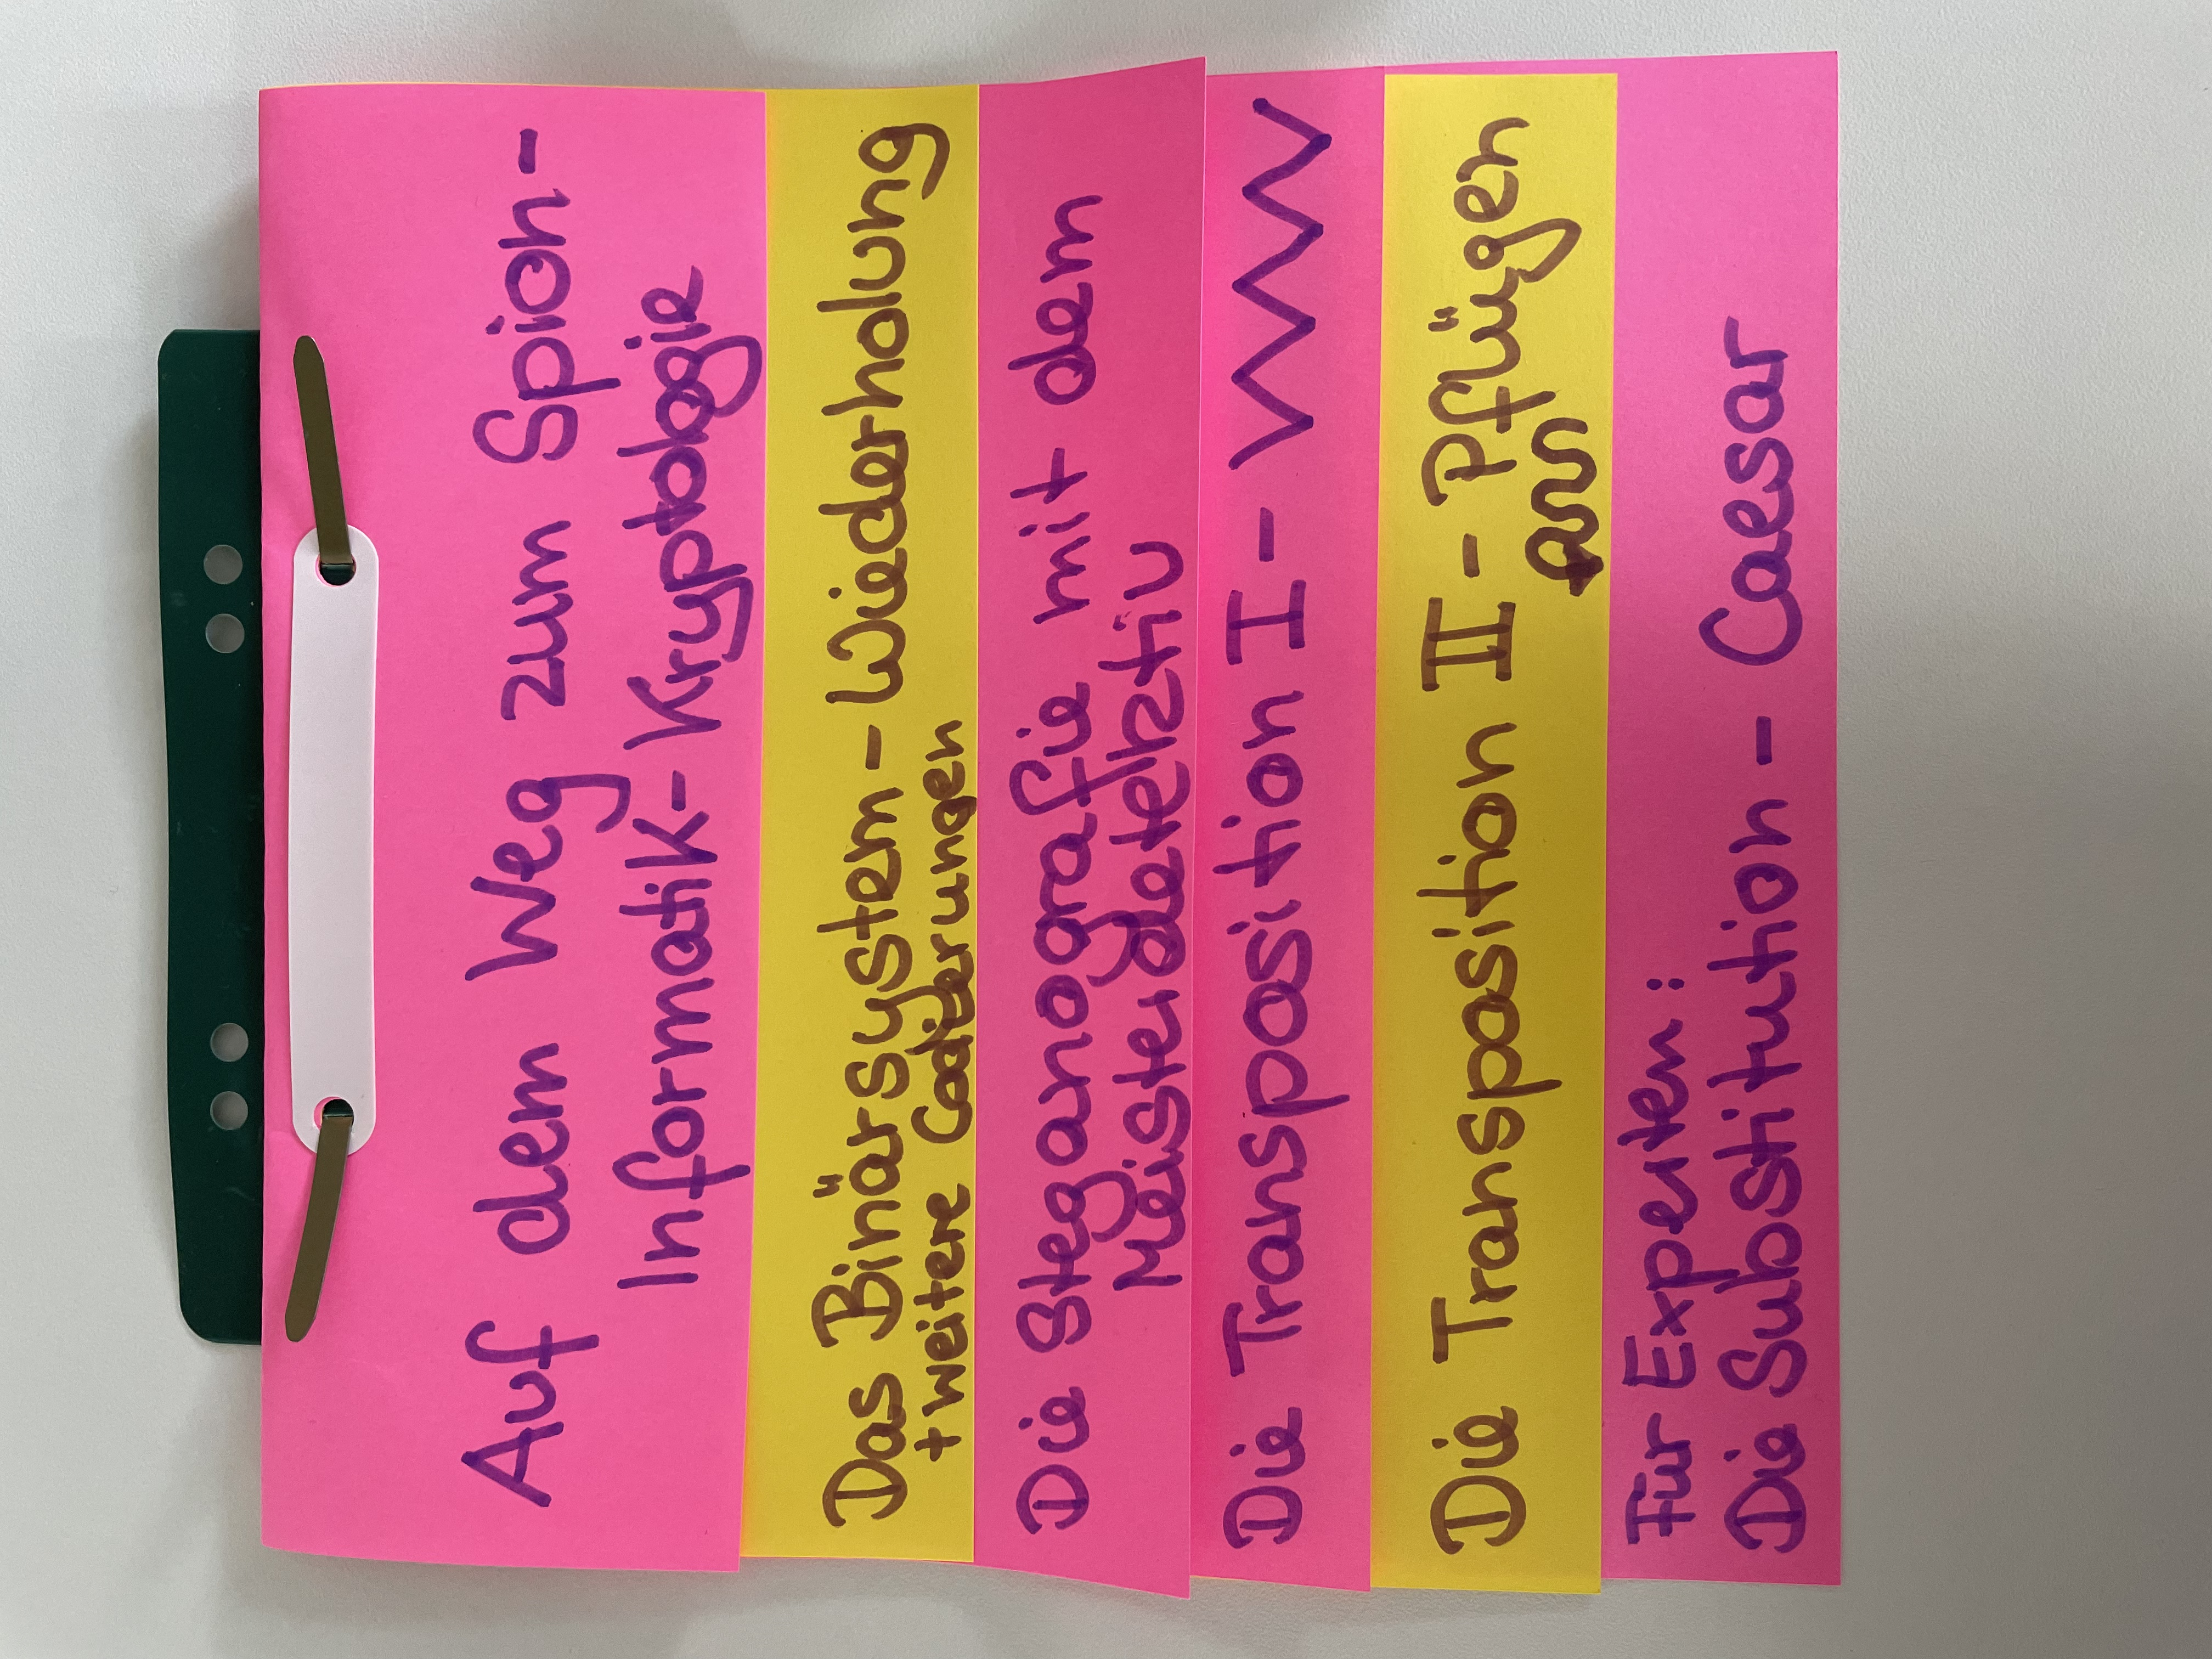 Auf dem Weg zum Spion -
Informatik - Kryptologie
Das Binärsystem - Wiederholung
+ weitere Codierungen
Die Steganografie mit dem
Meisterdetektiv
Die Transposition I -
Die Transposition II - Pflügen
Für Experten:
Die Substitution - Caesar